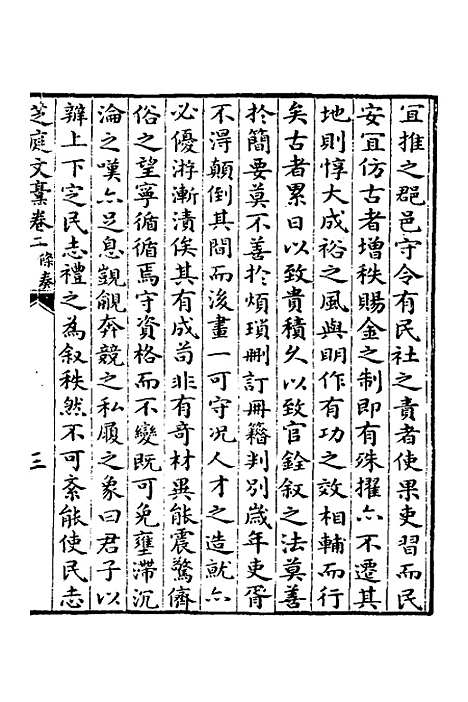 宜推之郡邑守令有民社之責者使果吏習而民
安宜仿古者增秩賜金之制即有殊擢亦不遷其
地則惇大成裕之風與明作有功之效相輔而行
矣古者累日以致貴積久以致官銓叙之法莫善
於簡要莫不善於煩瑣刪訂冊籍判別歲年吏胥
不得顛倒其間而後畫一可守況人才之造就亦
必優游漸漬俟其有成苟非有奇材異能震驚儕
俗之望寧循循焉守資格而不變既可免壅滯沉
淪之嘆亦足息覬覦奔競之私履之象曰君子以
辯上下定民志禮之為叙秩然不可紊能使民志
芝庭文稾卷二 條奏 三